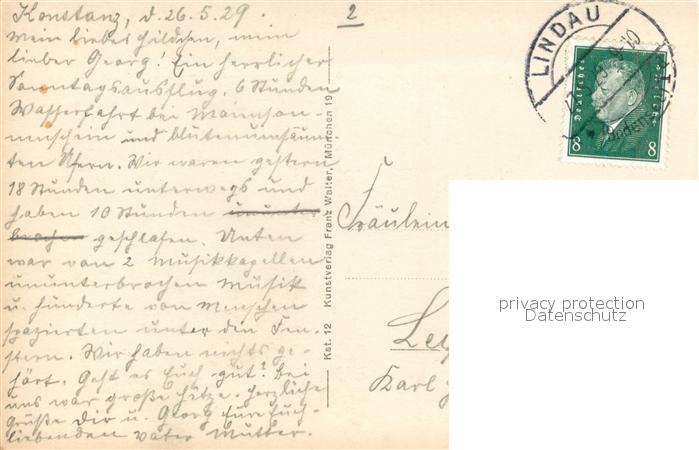 Konstanz, d. 26.5.29.
2
mein liebes Hildchen, mein
lieber Georg! Ein herrlicher
Sonntagsausflug. 6 Stunden
Wasserfahrt bei Maiensonn-
nenschein und blütenumsäum-
ten Ufern. Wir waren gestern
18 Stunden unterwegs und
haben 10 Stunden ununter
brochen geschlafen. Unten
war von 2 Musikkapellen
ununterbrochen Musik
u. hunderte von Menschen
spazierten unter den Fen-
stern. Wir haben nichts ge-
hört. Geht es Euch gut? Bei
uns war große Hitze. Herzliche
Grüße dir u. Georg Eure Euch
liebenden Vater Mutter.
Kst. 12 Kunstverlag Franz Walter, München 19
LINDAU
Deutsches Reich
8 8
Fräulein
Karl
privacy protection
Datenschutz